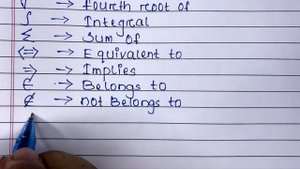 √ → fourth root of
∫ → Integral
Σ → Sum of
⇔ → Equivalent to
⇒ → Implies
∈ → Belongs to
∉ → not Belongs to